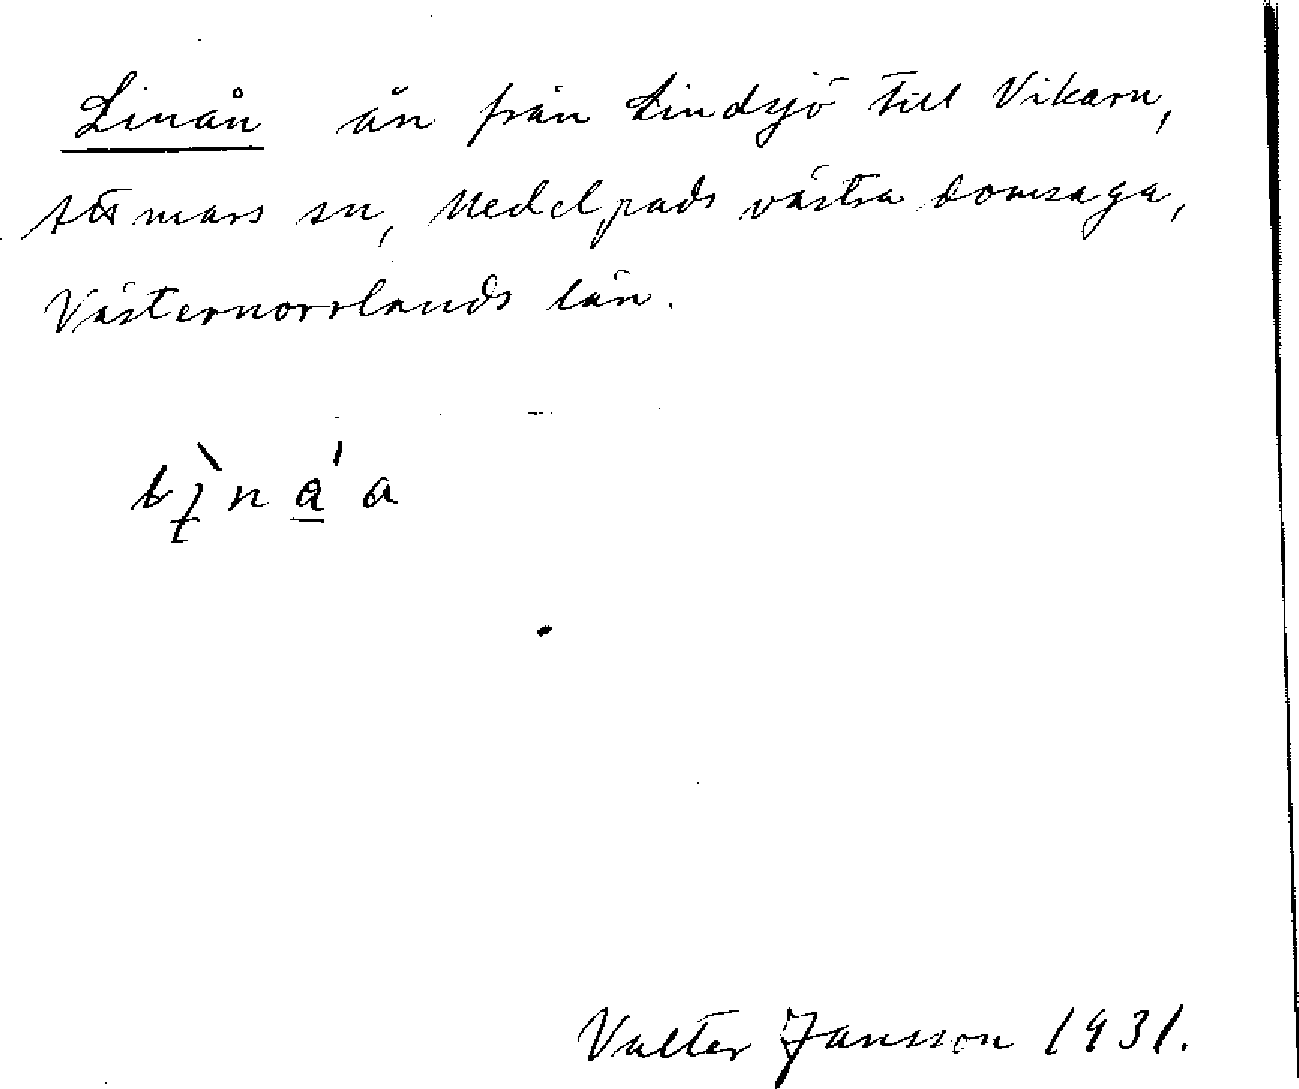 Linån ån från Lindsjö till Vikarn,
Attmars sn, Medelpads västra domsaga,
Västernorrlands län.
Valter Jansson 1931.